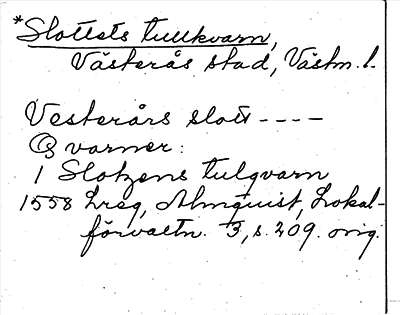 *Slottets tullkvarn,
Västerås stad, Västm. l.
Vesterårs slott ----
Qvarner:
1 Slotzens tulqvarn
1558 Lreg, Almquist, Lokal-
förvaltn. 3, s. 209. orig.